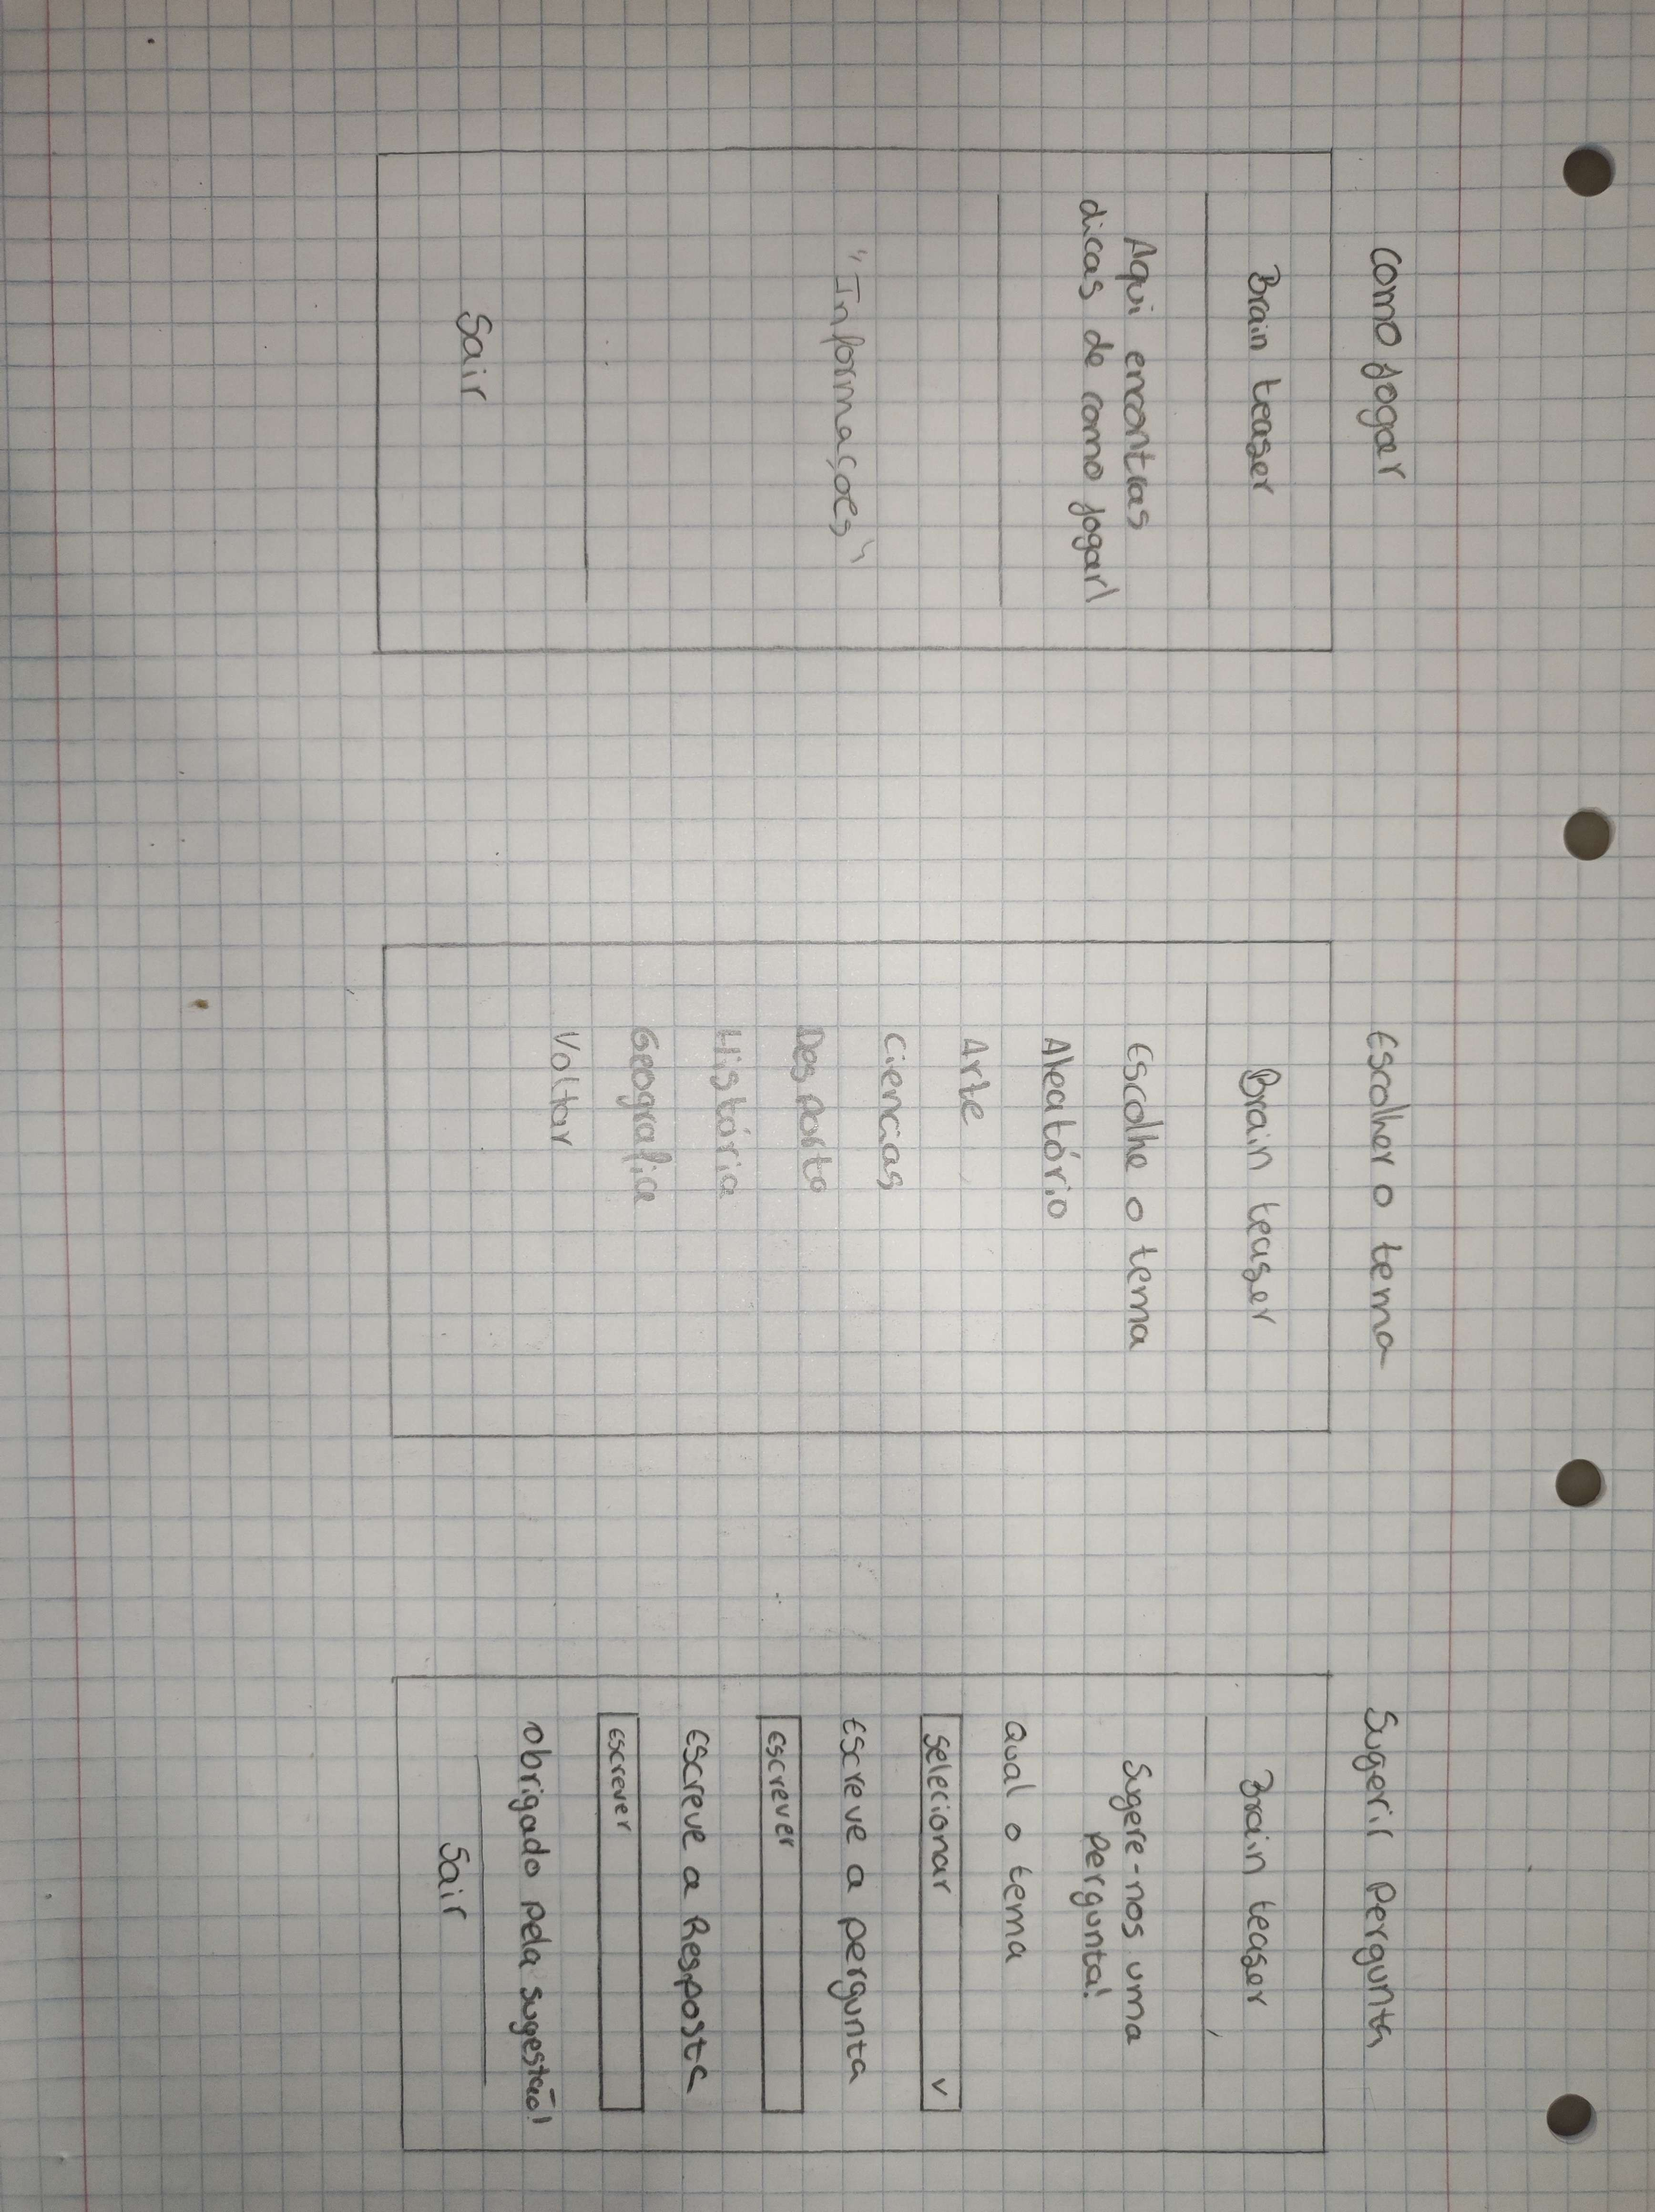 Como jogar
Brain teaser
Aqui encontras
dicas de como jogar!
"Informações"
Sair
Escolher o tema
Brain teaser
Escolhe o tema
Aleatório
Arte
Ciencias
Desporto
História
Geografia
Voltar
Sugerir pergunta
Brain teaser
Sugere-nos uma
pergunta!
Qual o tema
Selecionar v
Escreve a pergunta
Escrever
Escreve a Resposta
Escrever
Obrigado pela sugestão!
Sair